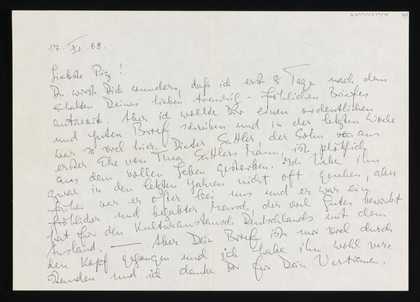 17. XI. 68.
Liebste Pig!
Du wirst Dich wundern, daß ich erst 8 Tage nach dem
Erhalten Deines lieben traurig-fröhlichen Briefes
antworte. Aber ich wollte Dir einen ordentlichen
und guten Brief schreiben und in der letzten Woche
war so viel hier. Dieter Sattler der Sohn aus
erster Ehe von Sattlers Mann, ist plötzlich
aus dem vollen Leben gestorben. Ich habe ihn
zwar in den letzten Jahren nicht oft gesehen, aber
früher war er öfter bei uns und er war ein
fröhlicher und begabter Freund, der viel Gutes bewirkt
hat für den Kulturaustausch Deutschlands mit dem
Ausland. — Aber Dein Brief ist mir viel durch
den Kopf gegangen und ich habe ihn wohl vers-
tanden und ich danke Dir für Dein Vertrauen.